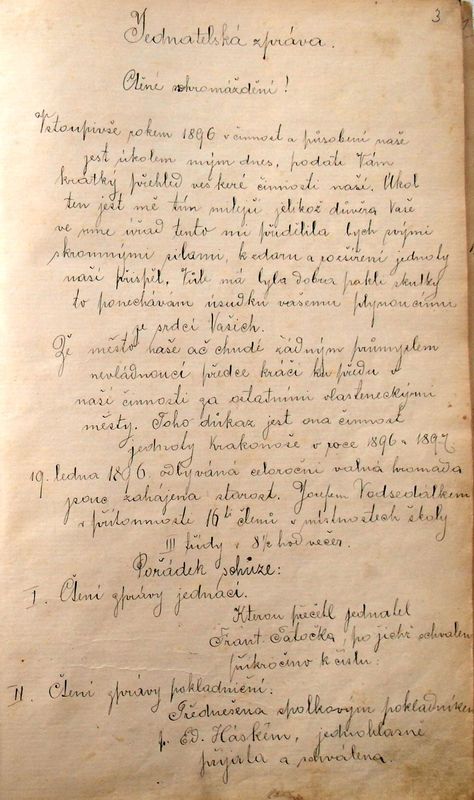 3
Jednatelská zpráva.
Ctěné shromáždění!
Vstoupivše rokem 1896 v činnost a působení naše
jest úkolem mým dnes, podati Vám
krátký přehled veškeré činnosti naší. Úkol
ten jest mě tím milejší jelikož důvěra Vaše
ve mne úřad tento mi přidělila bych svými
skromnými silami, k zdaru a rozšíření jednoty
naší přispěl. Vůle má byla dobrá pakli skutky
to ponechávám úsudku vašemu plynoucímu
ze srdcí Vašich.
Že město naše ač chudé žádným průmyslem
nevládnoucí předce kráčí ku předu v
naší činnosti za ostatními vlasteneckými
městy. Toho důkaz jest ona činnost
jednoty Krakonoše v roce 1896 a 1897.
19. ledna 1896 odbývaná celoroční valná hromada
jsouc zahájena starost. Josefem Vodsedálkem
v přítomnosti 16ti členů v místnostech školy
III třídy v 8½ hod večer.
Pořádek schůze:
I. Čtení zprávy jednací.
Kterou přečetl jednatel
Frant Patočka, po jichž schválení
přikročeno k čístu:
II. Čtení zprávy pokladniční:
Přednešena spolkovým pokladníkem
p. Ed. Háskem, jednohlasně
přijata a schválena.